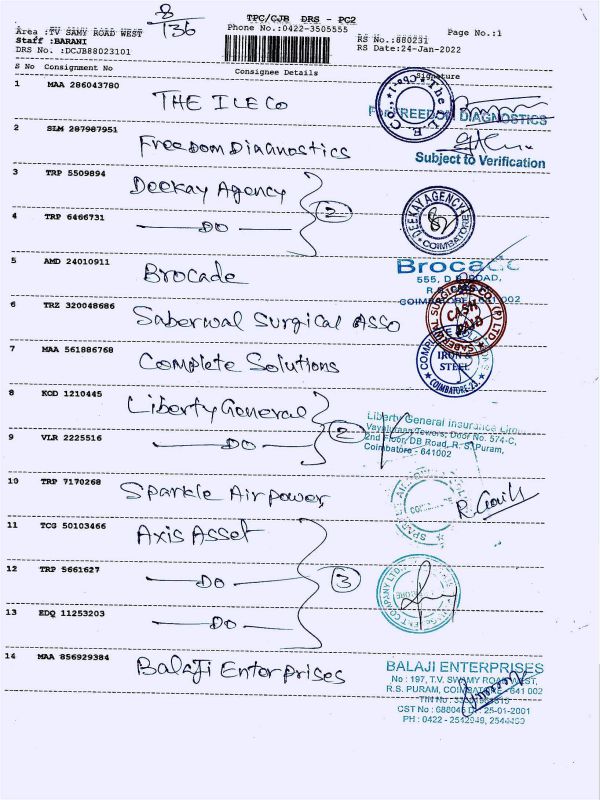 8
736
TPC/CJB DRS - PC2
Phone No.:0422-3505555
Page No.:1
Area :TV SAMY ROAD WEST
Staff :BARANI
DRS No. :DCJB88023101
RS No.:880231
RS Date:24-Jan-2022
S No Consignment No Consignee Details Signature
1 MAA 286043780 THE ILECO
For FREEDOM DIAGNOSTICS
2 SLM 287987951 Freedom Diagnostics
Subject to Verification
3 TRP 5509894 Deekay Agency
2
DEEKAY AGENCY
COIMBATORE
4 TRP 6466731 — DO —
5 AMD 24010911 Brocade
Brocade
555, D.B ROAD,
COIMBATORE - 641 002
6 TRZ 320048686 Saberwal Surgical Asso
CASH
PAID
7 MAA 561886768 Complete Solutions
IRON &
STEEL
COIMBATORE-23
8 KOD 1210445 Liberty General
2
Liberty General Insurance
Door No. 574-C,
2nd Floor, DB Road, R. S. Puram,
Coimbatore - 641002
9 VLR 2225516 — DO —
10 TRP 7170268 Sparkle Airpower
11 TCG 50103466 Axis Asset
12 TRP 5661627 — DO —
3
13 EDQ 11253203 — DO —
14 MAA 856929384 Balaji Enterprises
BALAJI ENTERPRISES
No : 197, T.V. SWAMY ROAD WEST,
R.S. PURAM, COIMBATORE - 641 002
TIN No :
CST No : 688045 Dt : 25-01-2001
PH : 0422 - 2542049,